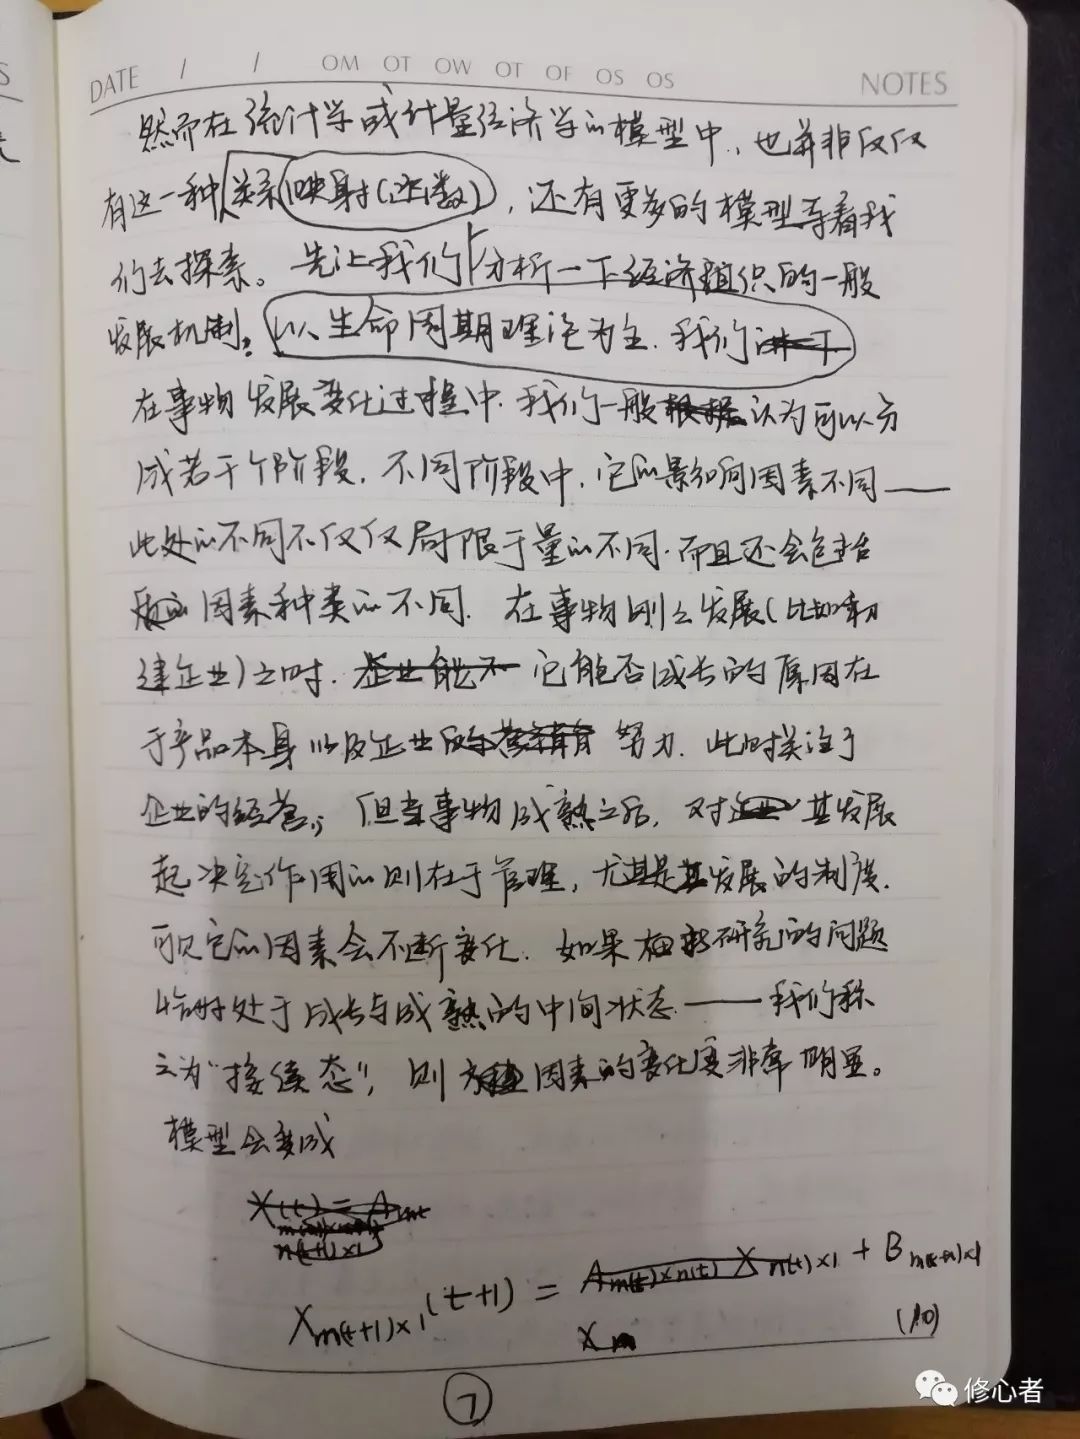 DATE / / OM OT OW OT OF OS OS NOTES
然而在统计学或计量经济学的模型中，也并非仅仅
有这一种关系映射(函数)，还有更多的模型等着我
们去探索。先让我们分析一下经济组织的一般
发展机制。以生命周期理论为主.我们
在事物发展变化过程中.我们一般认为可以分
成若干个阶段.不同阶段中.它的影响因素不同——
此处的不同不仅仅局限于量的不同.而且还会包括
因素种类的不同.在事物刚之发展(比如初
建企业)之时.它能否成长的原因在
于产品本身以及企业努力.此时关注于
企业的经营；但当事物成熟之后，对其发展
起决定作用的则在于管理，尤其是发展的制度.
可见它的因素会不断变化.如果研究的问题
恰好处于成长与成熟的中间状态——我们称
之为"接续态"，则因素的变化度非常明显。
模型会变成
X(t) = A
n(t+1)×1
X m(t+1)×1 (t+1) = A m(t)×n(t) X n(t)×1 + B m(t+1)×1
X m (10)
7
修心者